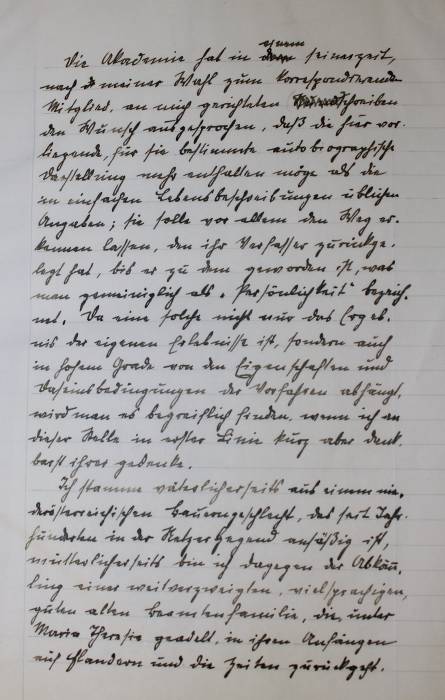 einem
Die Akademie hat in dem seinerzeit,
nach meiner Wahl zum korrespondierenden
Mitglied, an mich gerichteten schreiben
den Wunsch ausgesprochen, daß die hier vor-
liegende, für sie bestimmte autobiographische
Darstellung mehr enthalten möge als die
in einfachen Lebensbeschreibungen üblichen
Angaben; sie solle vor allem den Weg er-
kennen lassen, den ihr Verfasser zurückge-
legt hat, bis er zu dem geworden ist, was
man gemeiniglich als „Persönlichkeit" bezeich-
net. Da eine solche nicht nur das Ergeb-
nis der eigenen Erlebnisse ist, sondern auch
in hohem Grade von den Eigenschaften und
Daseinsbedingungen der Vorfahren abhängt,
wird man es begreiflich finden, wenn ich an
dieser Stelle in erster Linie kurz aber dank-
barst ihrer gedenke.
Ich stamme väterlicherseits aus einem nie-
derösterreichischen Bauerngeschlecht, das seit Jahr-
hunderten in der Retzer Gegend ansäßig ist,
mütterlicherseits bin ich dagegen der Abköm-
ling einer weitverzweigten, vielsprachigen,
guten alten Beamtenfamilie, die, unter
Maria Theresia geadelt, in ihren Anfängen
auf Flandern und die Zeiten zurückgeht.